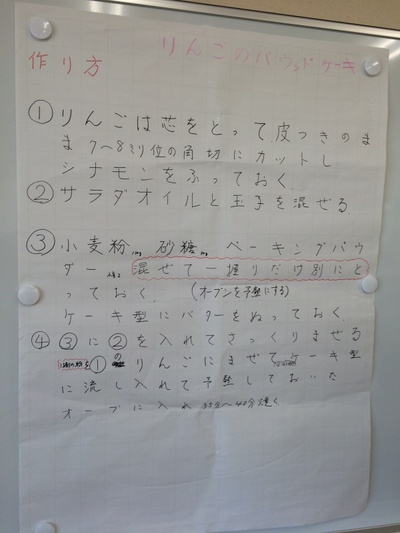 りんごのパウンドケーキ
作り方
①りんごは芯をとって、皮つきのま
ま7〜8ミリ位の角切にカットし
シナモンをふっておく。
②サラダオイルと玉子を混ぜる
③小麦粉 砂糖 ベーキングパウ
ダー 混ぜて一握りだけ別にと
っておく。(オーブンを予熱にする)
ケーキ型にバターをぬっておく。
④③に②を入れてさっくりませる
①のりんごにまぜてケーキ型
に流し入れて予熱しておいた
オーブに入れ 35分〜40分焼く